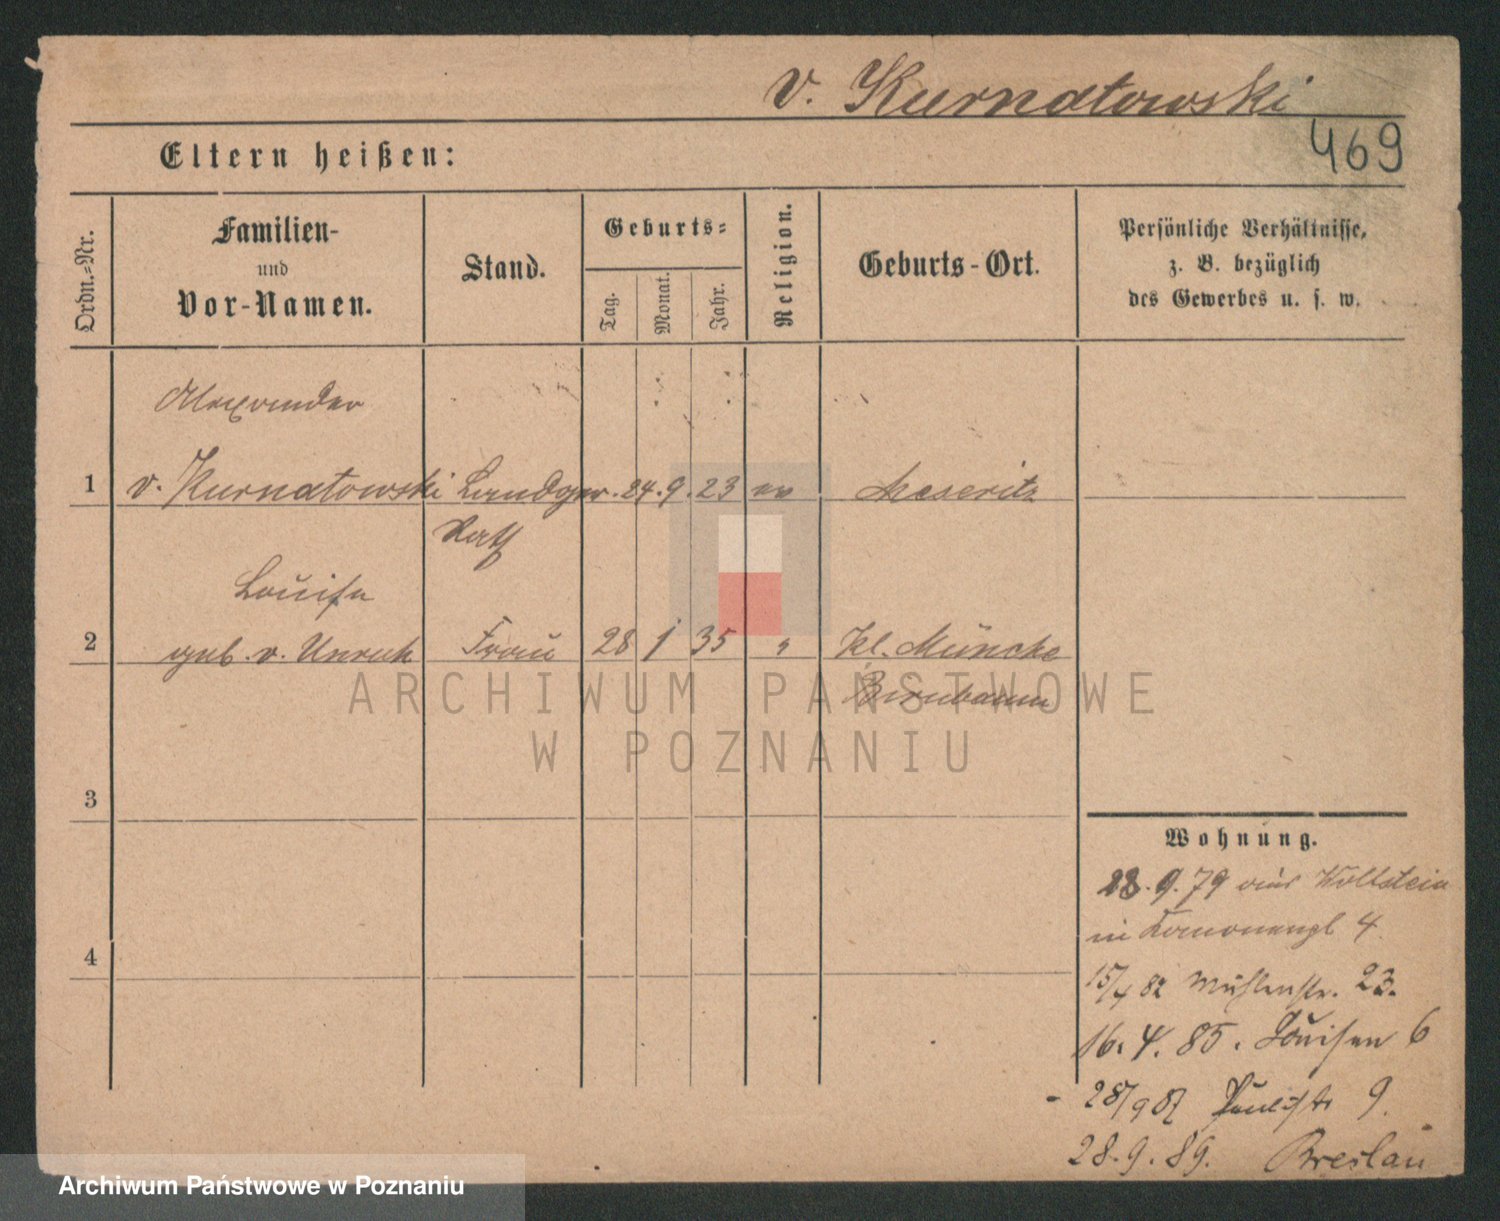 v. Kurnatowski
469
Eltern heißen:
Ordn.=Nr.
Familien-
und
Vor-Namen.
Stand.
Geburts=
Tag.
Monat.
Jahr.
Religion.
Geburts-Ort.
Persönliche Verhältnisse,
z. B. bezüglich
des Gewerbes u. s. w.
Alexander
1 v. Kurnatowski Landger. 24. 9. 23 ev Meseritz
Rath
Louise
2 geb. v. Unruh Frau 28 1 35 " Kl. Müncke
Birnbaum
3
4
Wohnung.
28. 9. 79 aus Wollstein
in 4
15/4 82 Mühlenstr. 23.
16. 4. 85. Louisen 6
- 28/9 87 Paulistr 9.
28. 9. 89. Breslau
ARCHIWUM PAŃSTWOWE
W POZNANIU
Archiwum Państwowe w Poznaniu